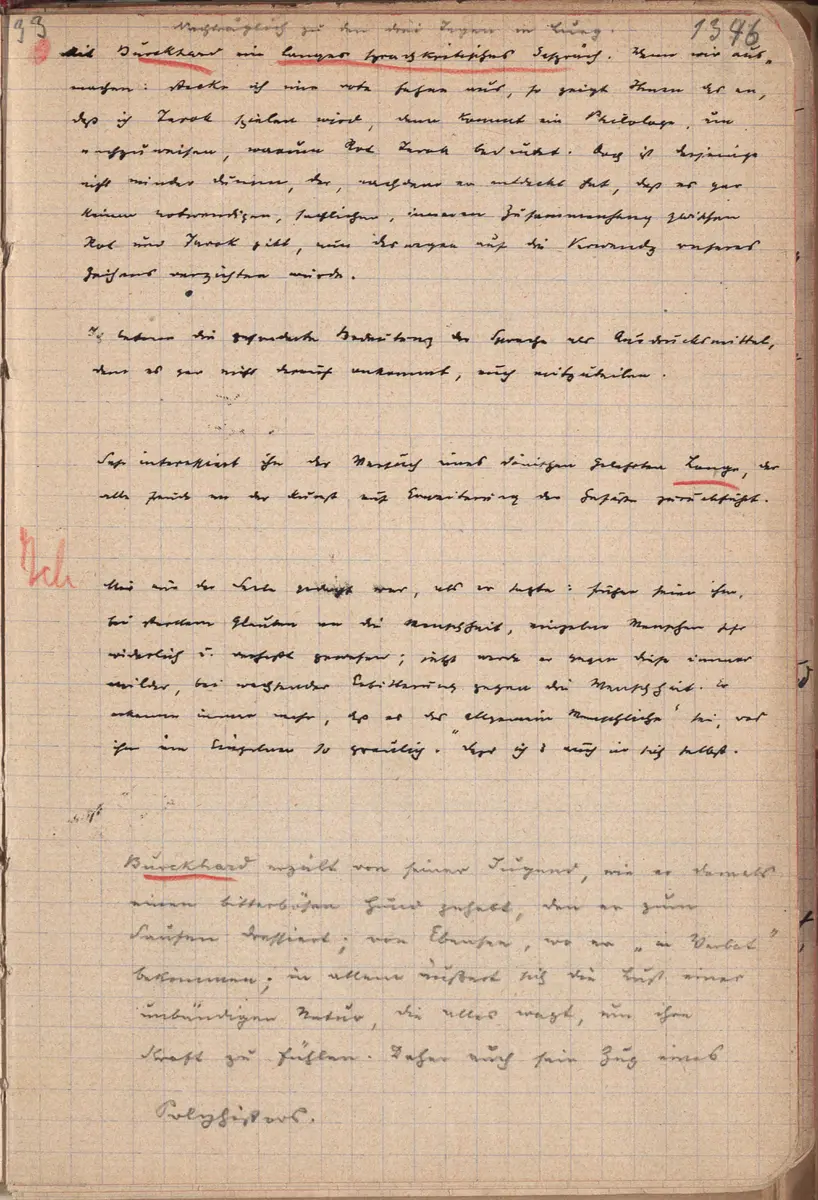 33
1346
Nachträglich zu den drei Tagen in Lueg.
Mit Burckhard ein langes sprachkritisches Gespräch. Wenn wir aus-
machen: stecke ich eine rote Fahne aus, so zeigt Ihnen das an,
daß ich Tarok spielen wird, dann kommt ein Philologe, um
nachzuweisen, warum Rot Tarok bedeutet. Doch ist derjenige
nicht minder dumm, der, nachdem er entdeckt hat, daß es gar
keinen notwendigen, sachlichen, inneren Zusammenhang zwischen
Rot und Tarok gibt, nun deswegen auf die Verwendg unseres
Zeichens verzichten würde.
Ich betone die Bedeutung der Sprache als Ausdrucksmittel,
dem es gar nicht darauf ankommt, auch mitzuteilen.
Sehr interessiert ihn der Versuch eines dänischen Gelehrten Lange, der
alle Freude an der Kunst auf Erweiterung der Gefäße zurückführt.
Ich
Mir aus der Seele war, als er sagte: früher seien ihm,
bei starkem Glauben an die Menschheit, einzelne Menschen sehr
widerlich u. verhaßt gewesen; jetzt werde er gegen diese immer
milder, bei wachsender Erbitterung gegen die Menschheit. Er
erkenne immer mehr, daß es das „allgemein Menschliche" sei, was
ihm im Einzelnen so greulich. Sage ich: auch in sich selbst.
Burckhard erzält von seiner Jugend, wie er damals
einen bitterbösen Hund gehabt, den er zum
Raufen dressiert; von Ebensee, wo er „a Verbot"
bekommen; in allem äußert sich die Lust einer
unbändigen Natur, die alles wagt, um ihre
Kraft zu fühlen. Daher auch sein Zug eines
Polyhistors.